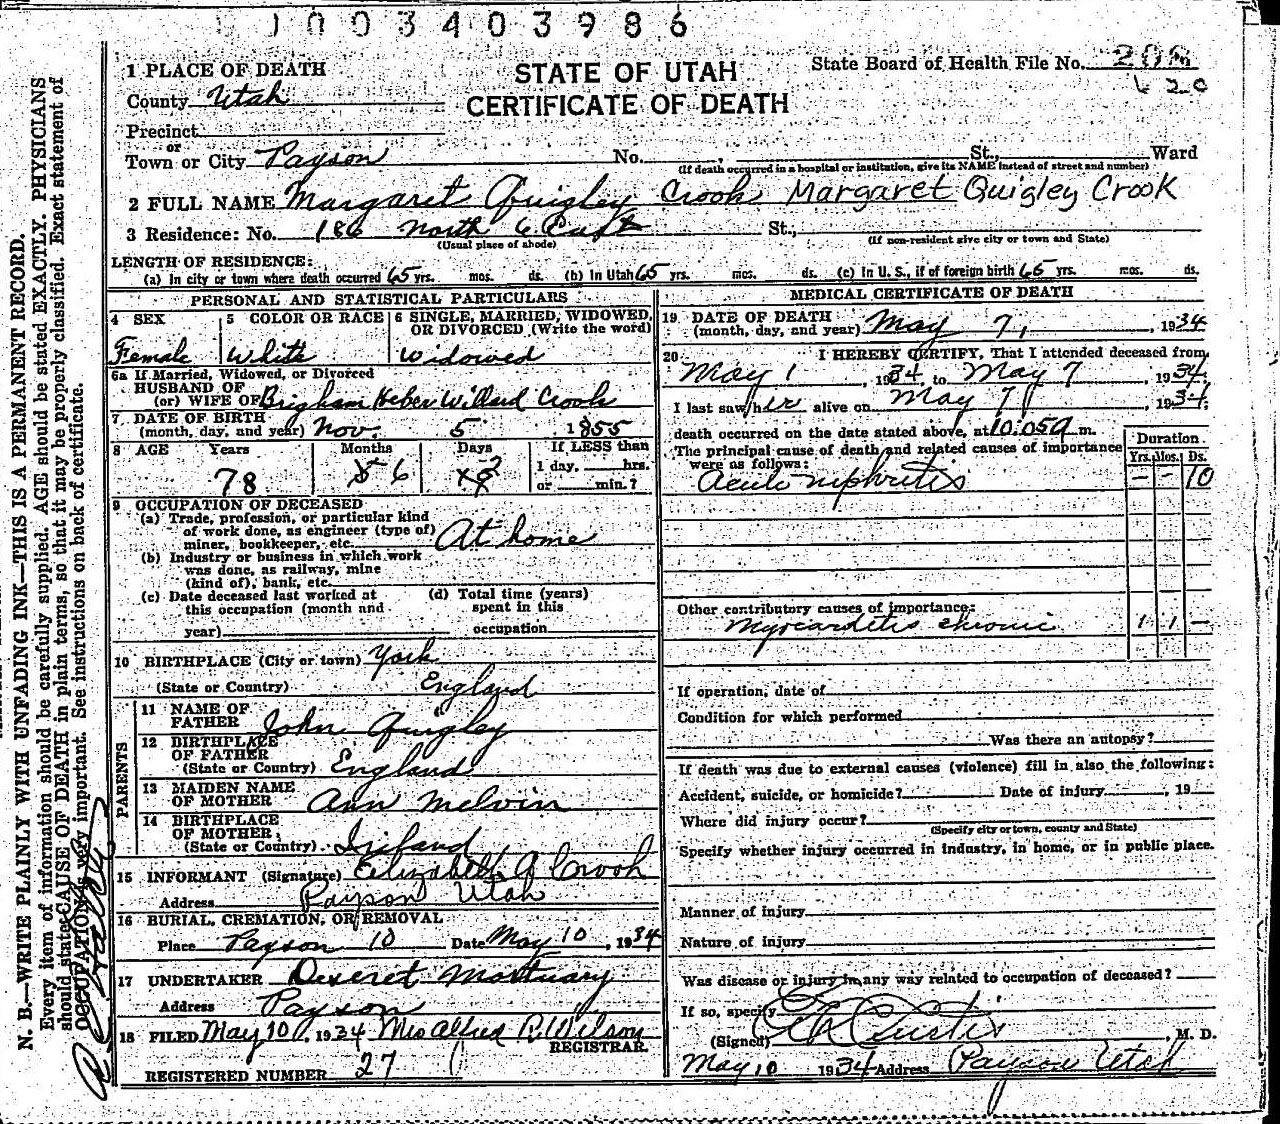 1003403986
1 PLACE OF DEATH
STATE OF UTAH
CERTIFICATE OF DEATH
State Board of Health File No.
620
County Utah
Precinct
or
Town or City Payson No. , St., Ward
(If death occurred in a hospital or institution, give its NAME instead of street and number)
2 FULL NAME Margaret Quigley Crook Margaret Quigley Crook
3 Residence: No. 186 North 6 East St.,
(Usual place of abode) (If non-resident give city or town and State)
LENGTH OF RESIDENCE:
(a) In city or town where death occurred 65 yrs. mos. ds. (b) In Utah 65 yrs. mos. ds. (c) In U. S., if of foreign birth 65 yrs. mos. ds.
PERSONAL AND STATISTICAL PARTICULARS
4 SEX 5 COLOR OR RACE 6 SINGLE, MARRIED, WIDOWED, OR DIVORCED (Write the word)
Female White Widowed
6a If Married, Widowed, or Divorced
HUSBAND OF
(or) WIFE OF Brigham Heber Willard Crook
7 DATE OF BIRTH
(month, day, and year) Nov. 5 1855
8 AGE Years Months Days If LESS than
1 day, hrs.
or min.?
78 5 6 2
9 OCCUPATION OF DECEASED
(a) Trade, profession, or particular kind
of work done, as engineer (type of)
miner, bookkeeper, etc. At home
(b) Industry or business in which work
was done, as railway, mine
(kind of), bank, etc.
(c) Date deceased last worked at
this occupation (month and
year)
(d) Total time (years)
spent in this
occupation
10 BIRTHPLACE (City or town) York
(State or Country) England
PARENTS
11 NAME OF
FATHER John Quigley
12 BIRTHPLACE
OF FATHER
(State or Country) England
13 MAIDEN NAME
OF MOTHER Ann Melvin
14 BIRTHPLACE
OF MOTHER
(State or Country) Ireland
15 INFORMANT (Signature) Elizabeth A Crook
Address Payson Utah
16 BURIAL, CREMATION, OR REMOVAL
Place Payson 10 Date May 10, 1934
17 UNDERTAKER Deseret Mortuary
Address Payson
18 FILED May 10, 1934 Mrs Alfred R. Wilson
REGISTRAR.
REGISTERED NUMBER 27
MEDICAL CERTIFICATE OF DEATH
19 DATE OF DEATH
(month, day, and year) May 7, 1934
20 I HEREBY CERTIFY, That I attended deceased from
May 1, 1934, to May 7, 1934
I last saw her alive on May 7, 1934;
death occurred on the date stated above, at 10:05a m.
The principal cause of death and related causes of importance
were as follows:
Duration
Yrs. Mos. Ds.
Acute nephritis - - 10
Other contributory causes of importance:
Myocarditis chronic 1 1 -
If operation, date of
Condition for which performed
Was there an autopsy?
If death was due to external causes (violence) fill in also the following:
Accident, suicide, or homicide? Date of injury , 19
Where did injury occur?
(Specify city or town, county and State)
Specify whether injury occurred in industry, in home, or in public place.
Manner of injury
Nature of injury
Was disease or injury in any way related to occupation of deceased?
If so, specify
(Signed) Curtis, M. D.
May 10 1934 Address Payson Utah
N. B.—WRITE PLAINLY WITH UNFADING INK—THIS IS A PERMANENT RECORD.
Every item of information should be carefully supplied. AGE should be stated EXACTLY. PHYSICIANS
should state CAUSE OF DEATH in plain terms, so that it may be properly classified. Exact statement of
OCCUPATION is very important. See instructions on back of certificate.